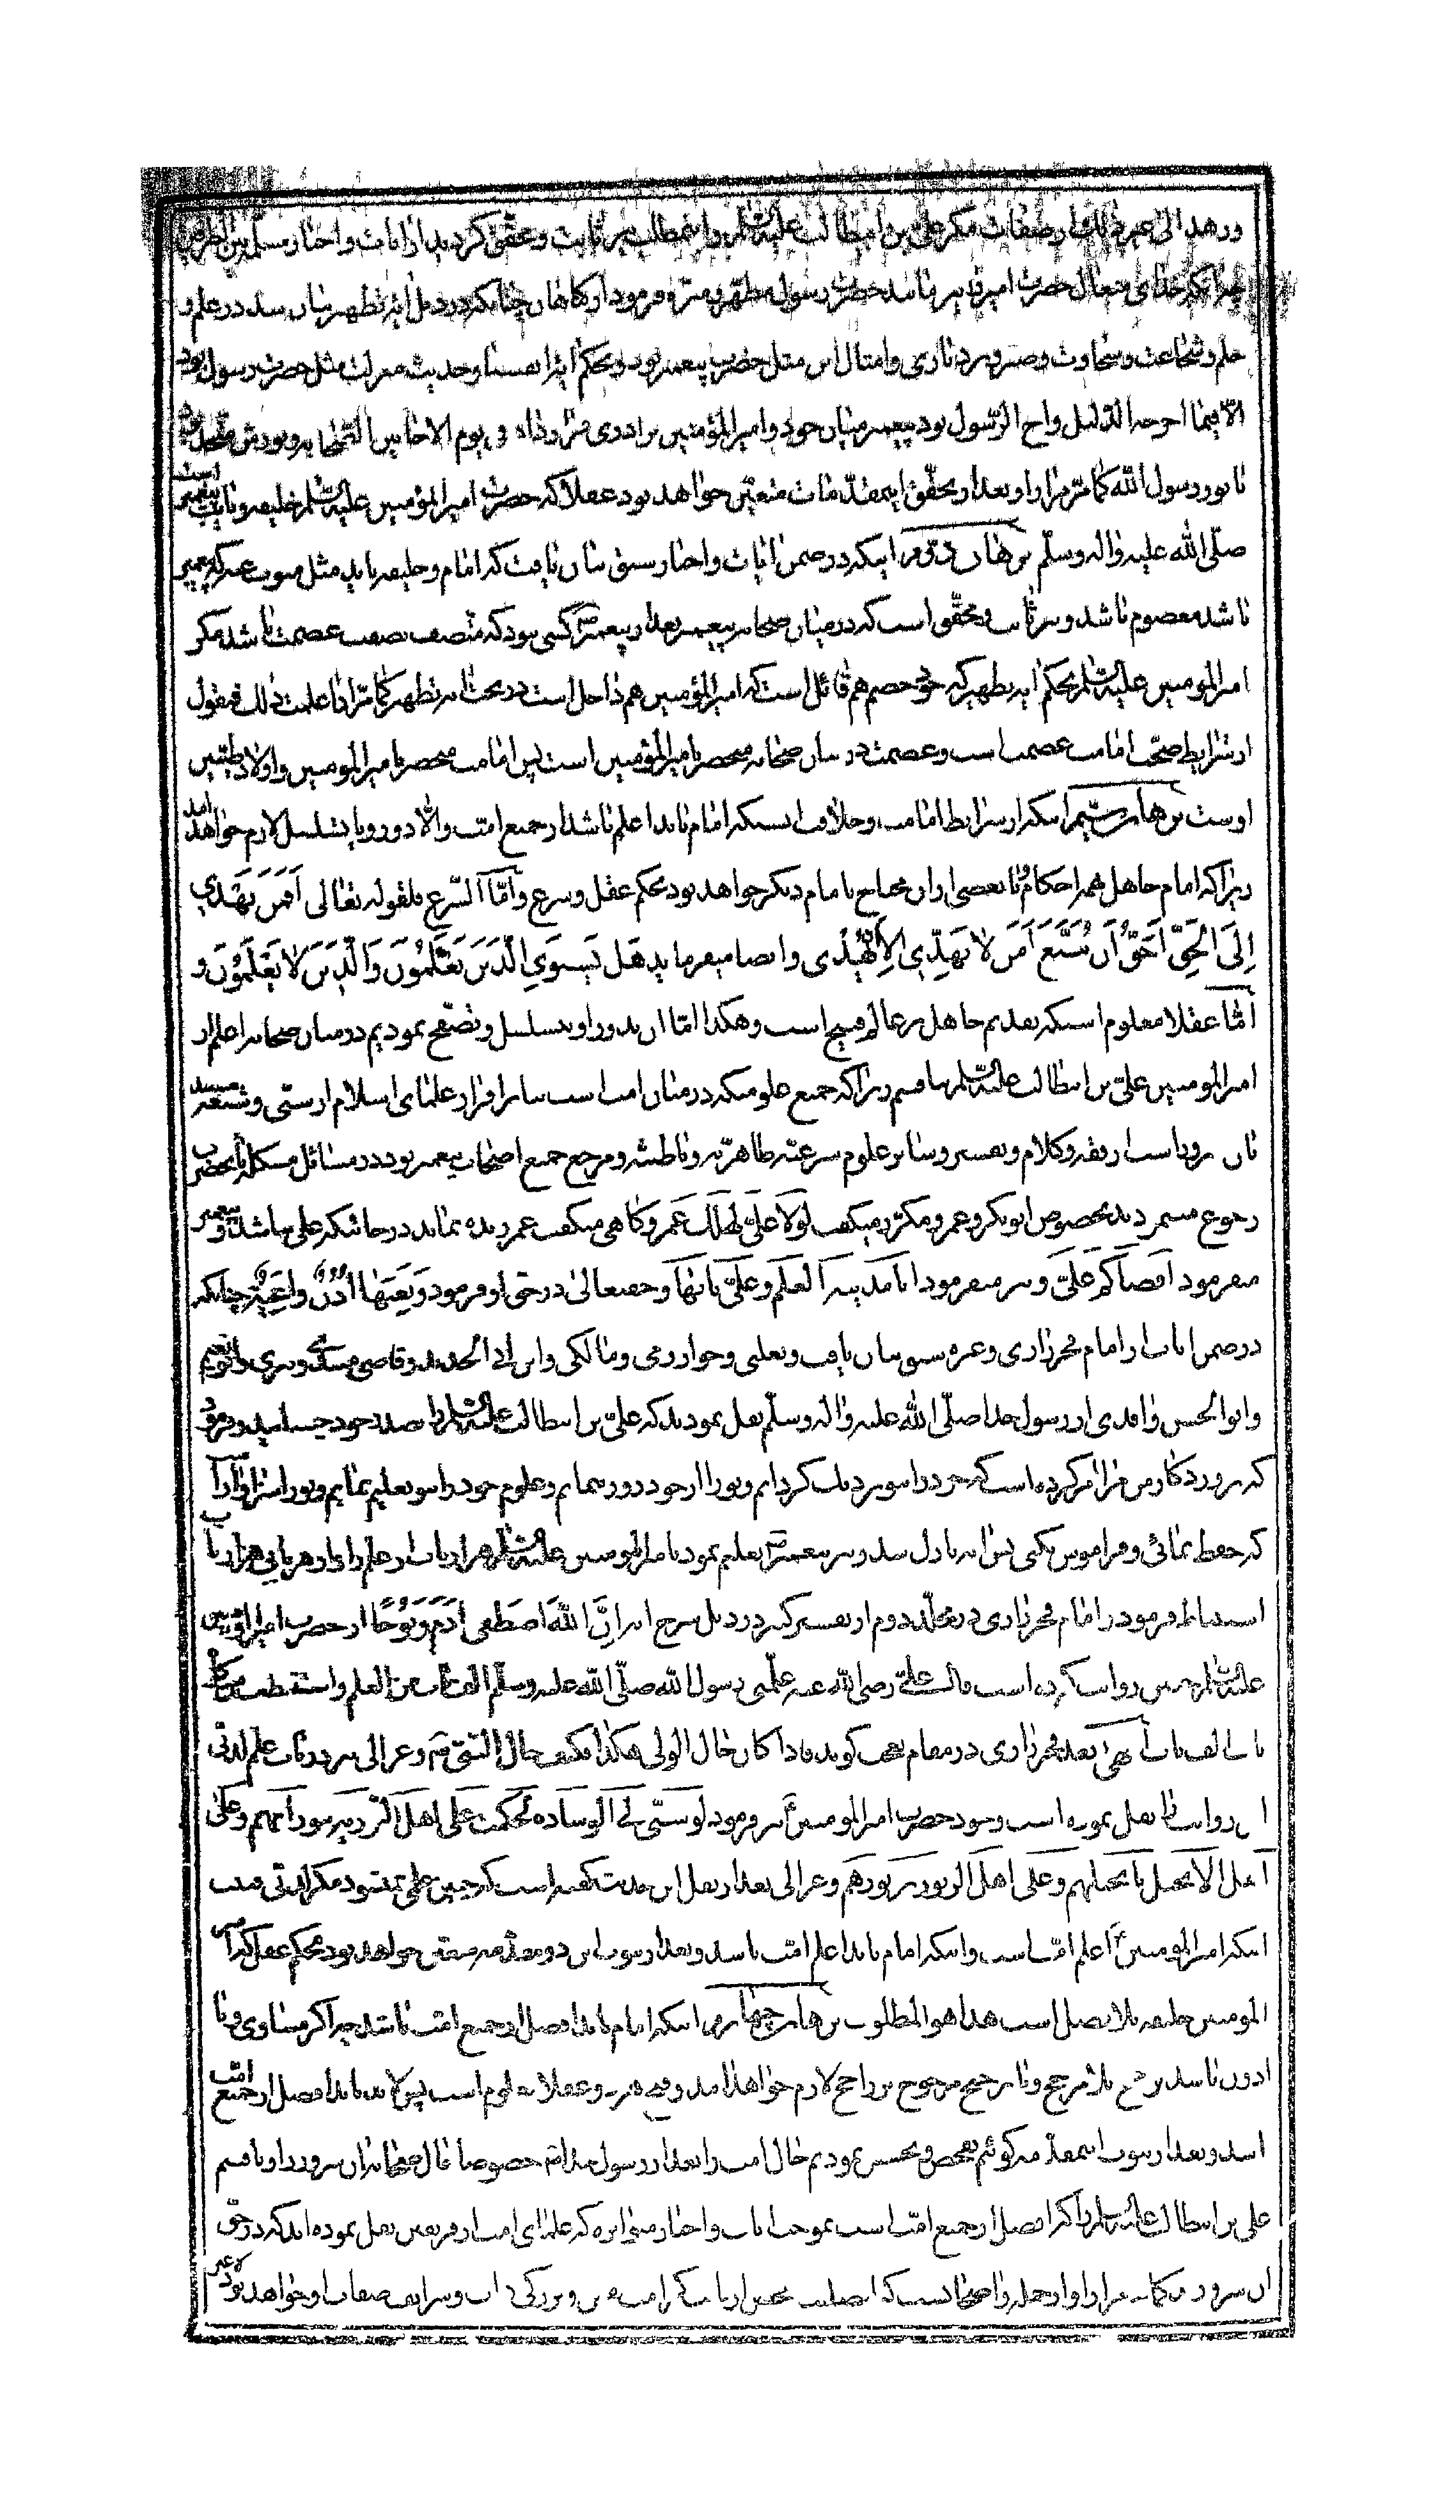 و زهد الی غیر ذلک از صفات مگر علی بن ابیطالب علیه السلام و این مطلب نیز ثابت و محقق گردید از آیات و اخبار مسلم بین
چرا که خدای متعال حضرت امیر را نیز مانند حضرت رسول مطهر و منزه فرمود از گناهان چنانکه در ذیل آیه تطهیر بیان شد در علم و
حلم و شجاعت و سخاوت و صبر و بردباری و امثال این مثل حضرت پیغمبر بود و بحکم آیه انفسنا و حدیث منزلت مثل حضرت رسول بود
الا فیما اخرجه الدلیل و اخ الرسول بود پیغمبر میان خود و امیر المؤمنین برادری قرار داده و یوم الاخا بین الصحابه و نورش متحد بود
با نور رسول الله کما مر مرارا و بعد از تحقق اینمقدمات متعین خواهد بود عقلا که حضرت امیر المؤمنین علیه السلام خلیفه و نایب پیغمبر است
صلی الله علیه و اله و سلم برهان دوم اینکه در ضمن ایات و اخبار سبق بیان یافت که امام و خلیفه باید مثل منوب عنه که پیغمبر
باشد معصوم باشد و نیز ثابت و محقق است که در میان صحابه پیغمبر بعد از پیغمبر ص کسی نبود که متصف بصفت عصمت باشد مگر
امیر المومنین علیه السلام بحکم ایه تطهیر که خود خصم هم قائل است که امیر المؤمنین هم داخل است در تحت ایه تطهیر کما مر اذا علمت ذلک فنقول
از شرایط صحت امامت عصمت است و عصمت در میان صحابه منحصر بامیر المؤمنین است پس امامت منحصر بامیر المومنین و اولاد طیبین
اوست برهان سیم اینکه از شرایط امامت و خلافت اینست که امام باید اعلم باشد از جمیع امت و الا دور و یا تسلسل لازم خواهد امد
زیرا که امام جاهل بهمه احکام و یا ببعضی از ان محتاج بامام دیگر خواهد بود بحکم عقل و شرع و اما الشرع فلقوله تعالی افمن یهدی
الی الحق احق ان یتبع امن لا یهدی الا ان یهدی و ایضا میفرماید هل یستوی الذین یعلمون والذین لا یعلمون و
اما عقلا معلوم است که تقدیم جاهل بر عالم قبیح است و هکذا اما ان یدور او یتسلسل و تصفح نمودیم در میان صحابه اعلم از
امیر المومنین علی بن ابیطالب علیه السلام نیافتیم زیرا که جمیع علومیکه در میان امت است بنا بر اقرار علمای اسلام از سنی و شیعه مستند
بان سرور است از فقه و کلام و تفسیر و سایر علوم شرعیه ظاهریه و باطنیه و مرجع جمیع اصحاب پیغمبر بود در مسائل مشکله بانحضرت
رجوع مینمودند بخصوص ابوبکر و عمر و مکرر میگفت لولا علی لهلک عمر و گاهی میگفت عمر زنده نماند در جائیکه علی نباشد و پیغمبر
میفرمود اقضاکم علی و نیز میفرمود انا مدینة العلم و علی بابها و حقتعالی در حق او فرمود و تعیها اذن واعیة چنانکه
در ضمن ایات از امام فخر رازی و غیره سبق بیان یافت و ثعلبی و خوارزمی و مالکی و ابن ابی الحدید و قاضی میبدی و نیریزی و ابو نعیم
و ابو الحسن واقدی از رسول خدا صلی الله علیه و اله و سلم نقل نمودند که علی بن ابیطالب علیه السلام را بصدر خود چسبانید و فرمود
که پروردگار من مرا امر کرده است که خود را بتو نزدیک گردانم و تو را از خود دور ننمایم و علوم خود را بتو تعلیم نمایم و تو را سزاوار است
که حفظ نمائی و فراموش نکنی پس ایه نازل شد و نیز پیغمبر ص تعلیم نمود بامیر المومنین علیه السلام هزار باب از علم را و از هر بابی هزار باب
استنباط فرمود و امام فخر رازی در مجلد دوم از تفسیر کبیر در ذیل شرح ایه ان الله اصطفی ادم و نوحا از حضرت امیر المؤمنین
علیه السلام چنین روایت کرده است قال علی رضی الله عنه علمنی رسول الله صلی الله علیه و سلم الف باب من العلم و استنبطت من کل
باب الف باب انتهی بعد فخر رازی در مقام تعجب گوید فاذا کان حال الولی هکذا فکیف حال النبی ص و غزالی نیز در باب علم لدنی
این روایت را نقل نموده است و خود حضرت امیر المومنین ع نیز فرمود لو ثنیت لی الوسادة لحکمت علی اهل التوریة بتوریتهم و علی
اهل الانجیل بانجیلهم و علی اهل الزبور بزبورهم و غزالی بعد از نقل این حدیث گفته است که چنین علمی نمیشود مگر لدنی
اینکه امیر المومنین ع اعلم امت است و اینکه امام باید اعلم امت باشد و بعد از ثبوت این دو مقدمه متعین خواهد بود بحکم عقل که امیر
المومنین خلیفه بلا فصل است هذا هو المطلوب برهان چهارم اینکه امام باید افضل از جمیع امت باشد چرا که اگر مساوی و یا
ادون باشد ترجیح بلا مرجح و یا ترجیح مرجوح بر راجح لازم خواهد امد و عقلا معلوم است پس لابد باید افضل از جمیع امت
باشد و بعد از ثبوت اینمقدمه گوئیم تفحص و تجسس نمودیم حال امت را بعد از رسول خدا ص خصوصا حال صحابه ان سرور را و نیافتیم
علی بن ابیطالب علیه السلام را که افضل از جمیع امت است بموجب ایات و اخبار متواتره که علمای امت از فریقین نقل نموده اند که در حق
ان سرور